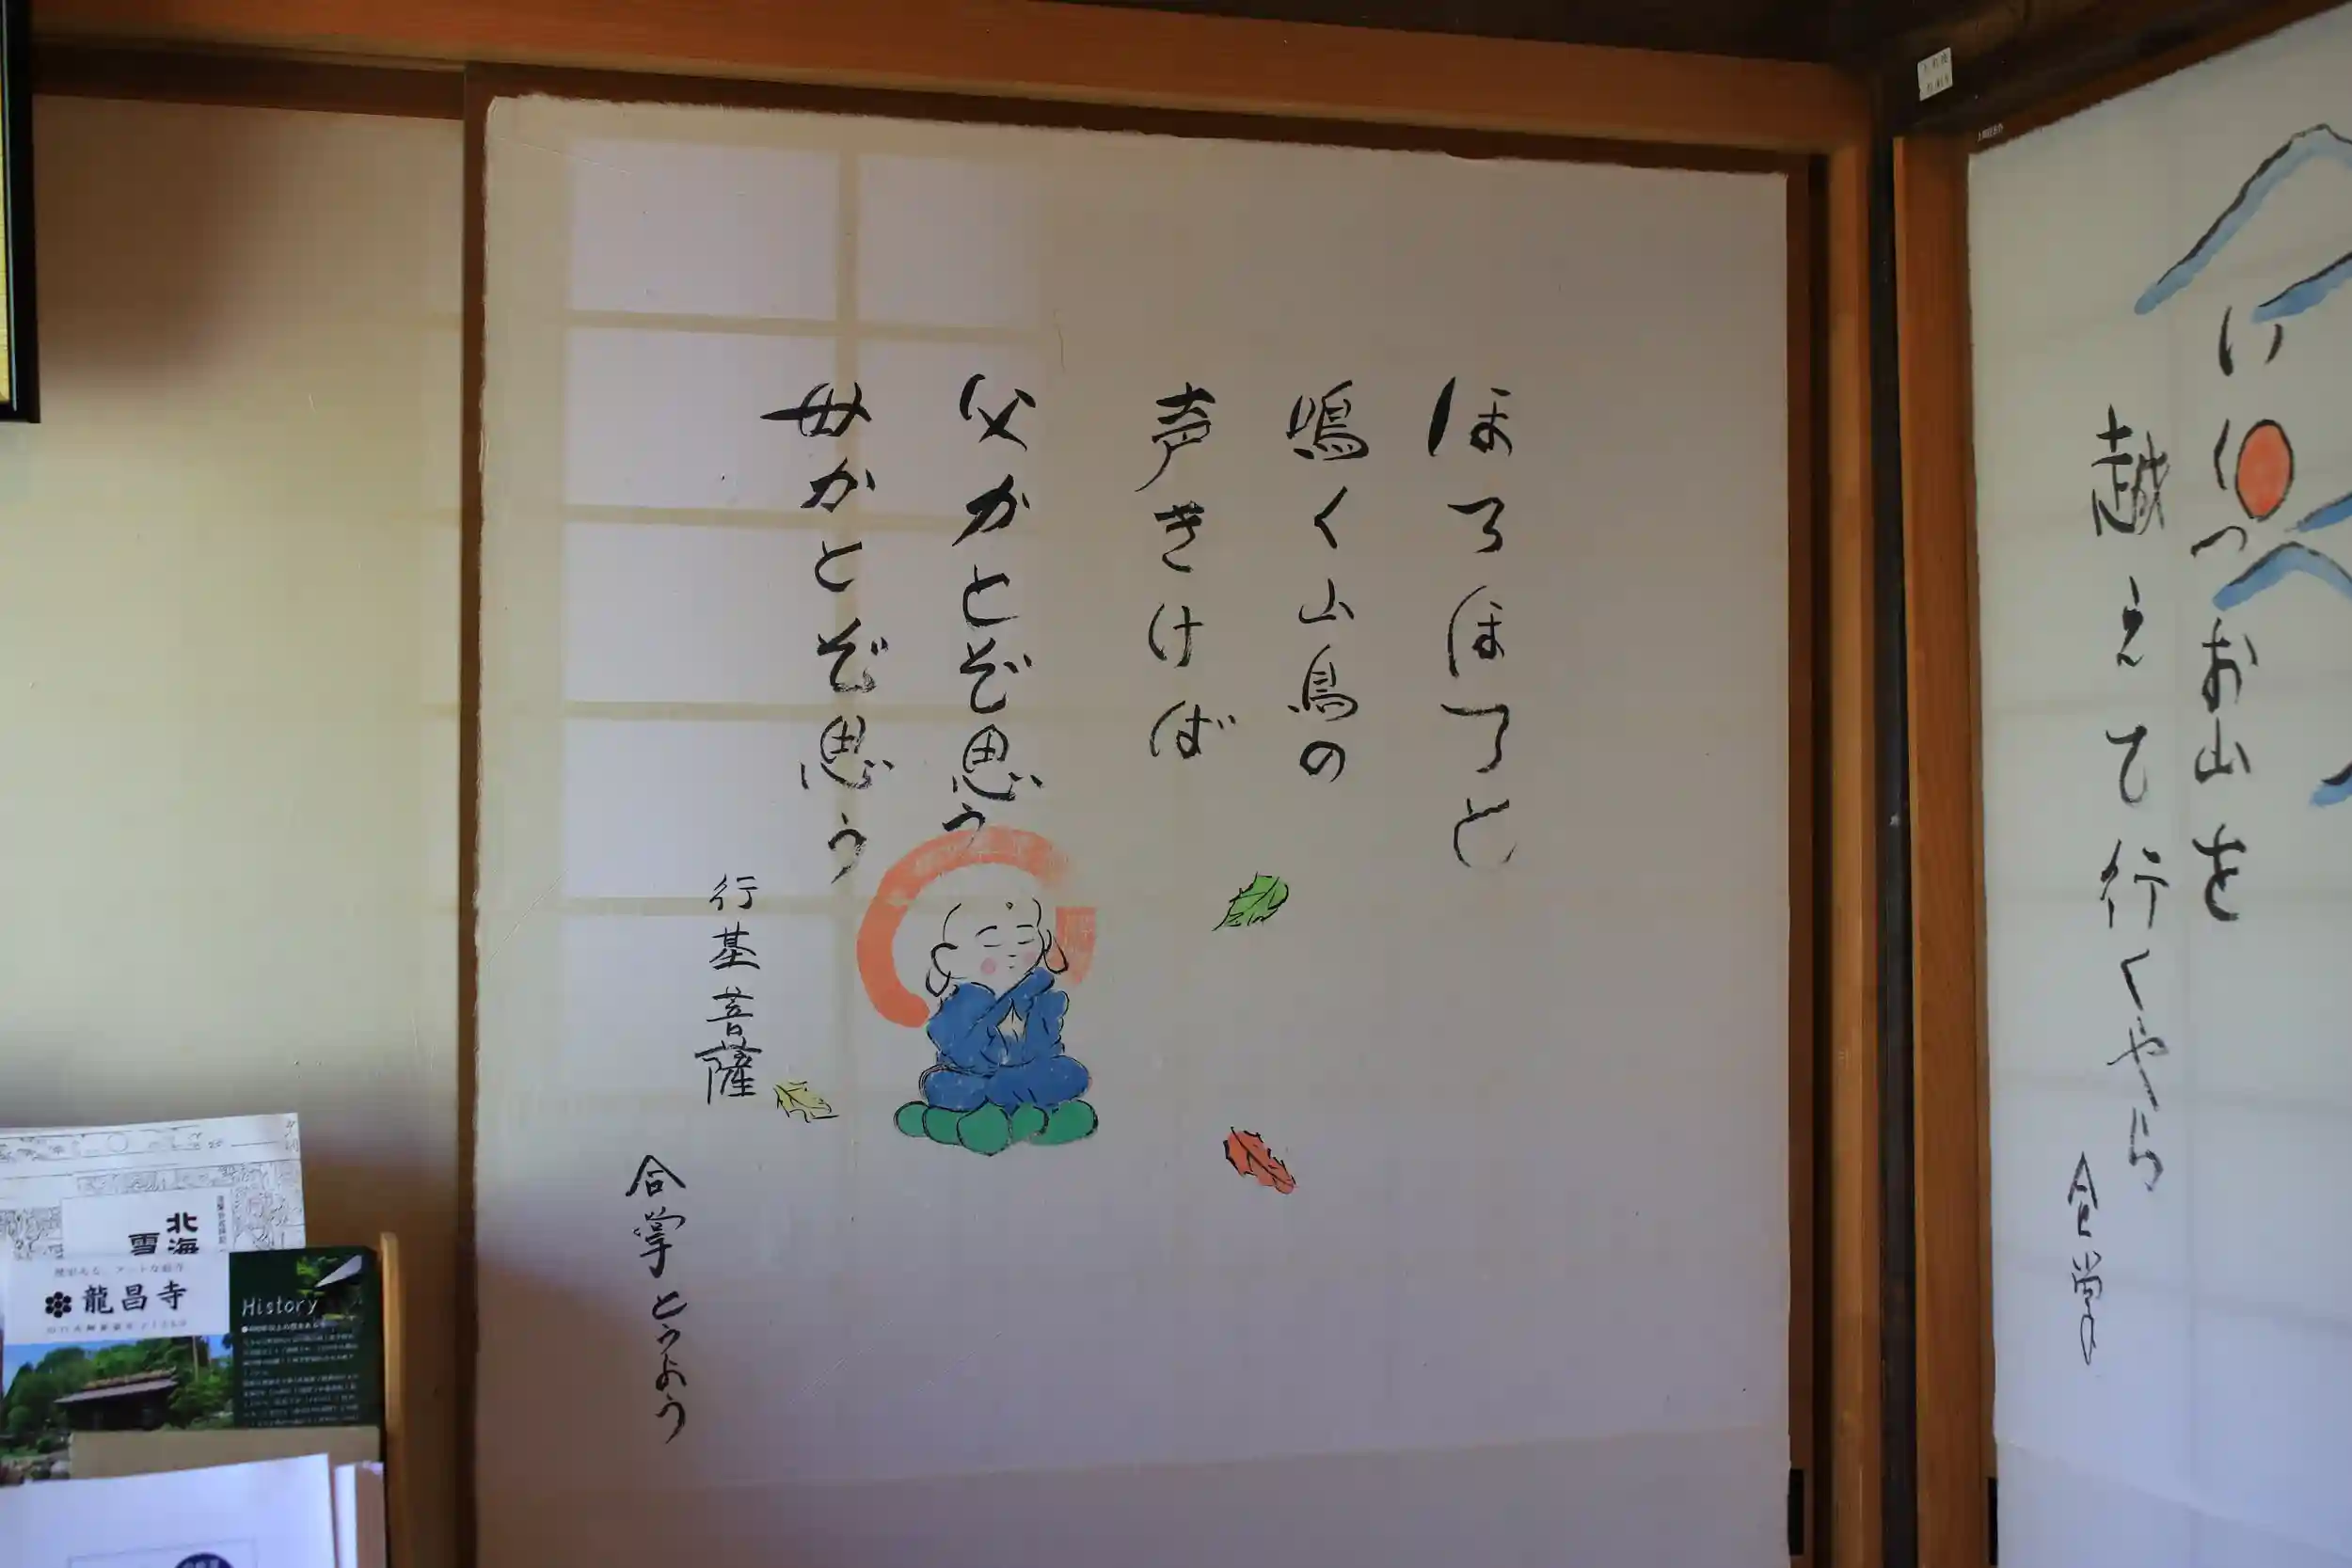 ほろほろと
鳴く山鳥の
声きけば
父かとぞ思う
母かとぞ思う
行基菩薩
合掌とうよう
いくつお山を
越えて行くやら
合掌
北海
雪
龍昌寺
History